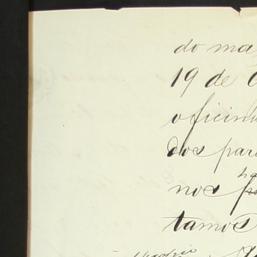 do ma
19 de O
officin
dos par
nos
tamos